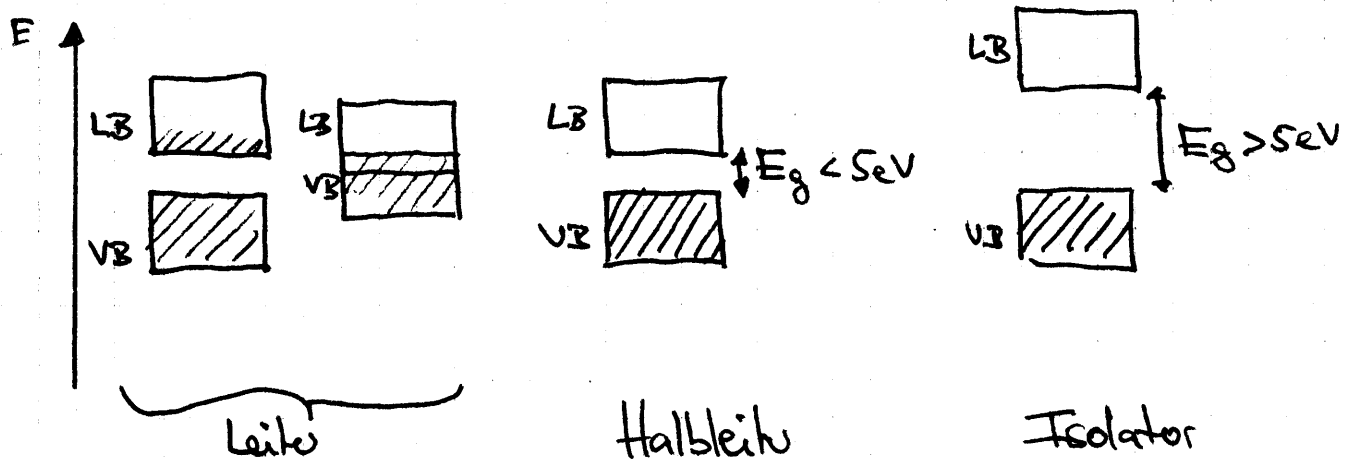 E
LB
VB
LB
VB
LB
Eg < 5eV
VB
LB
Eg > 5eV
VB
Leiter
Halbleiter
Isolator